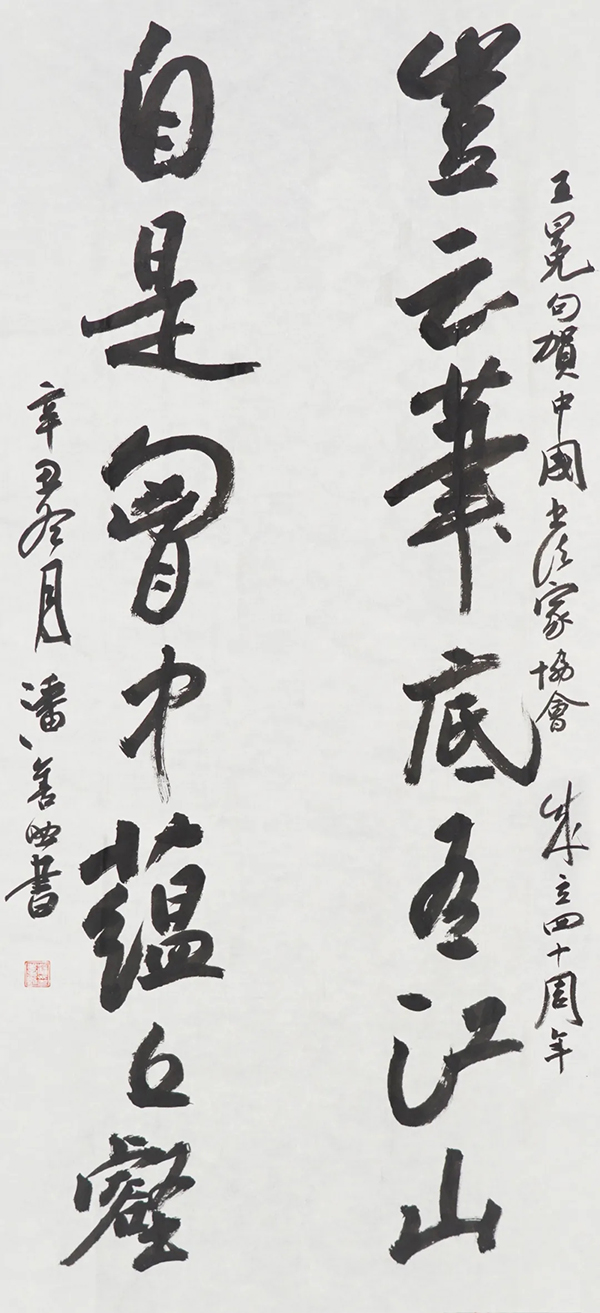 王冕句賀中國书法家協會成立四十周年
豈云筆底有江山
自是胷中蘊丘壑
辛丑冬月潘善助書